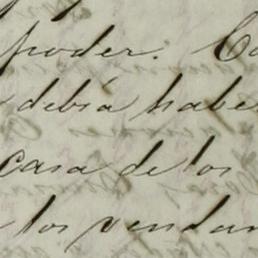 poder.
debia habe
casa de los
los vendan